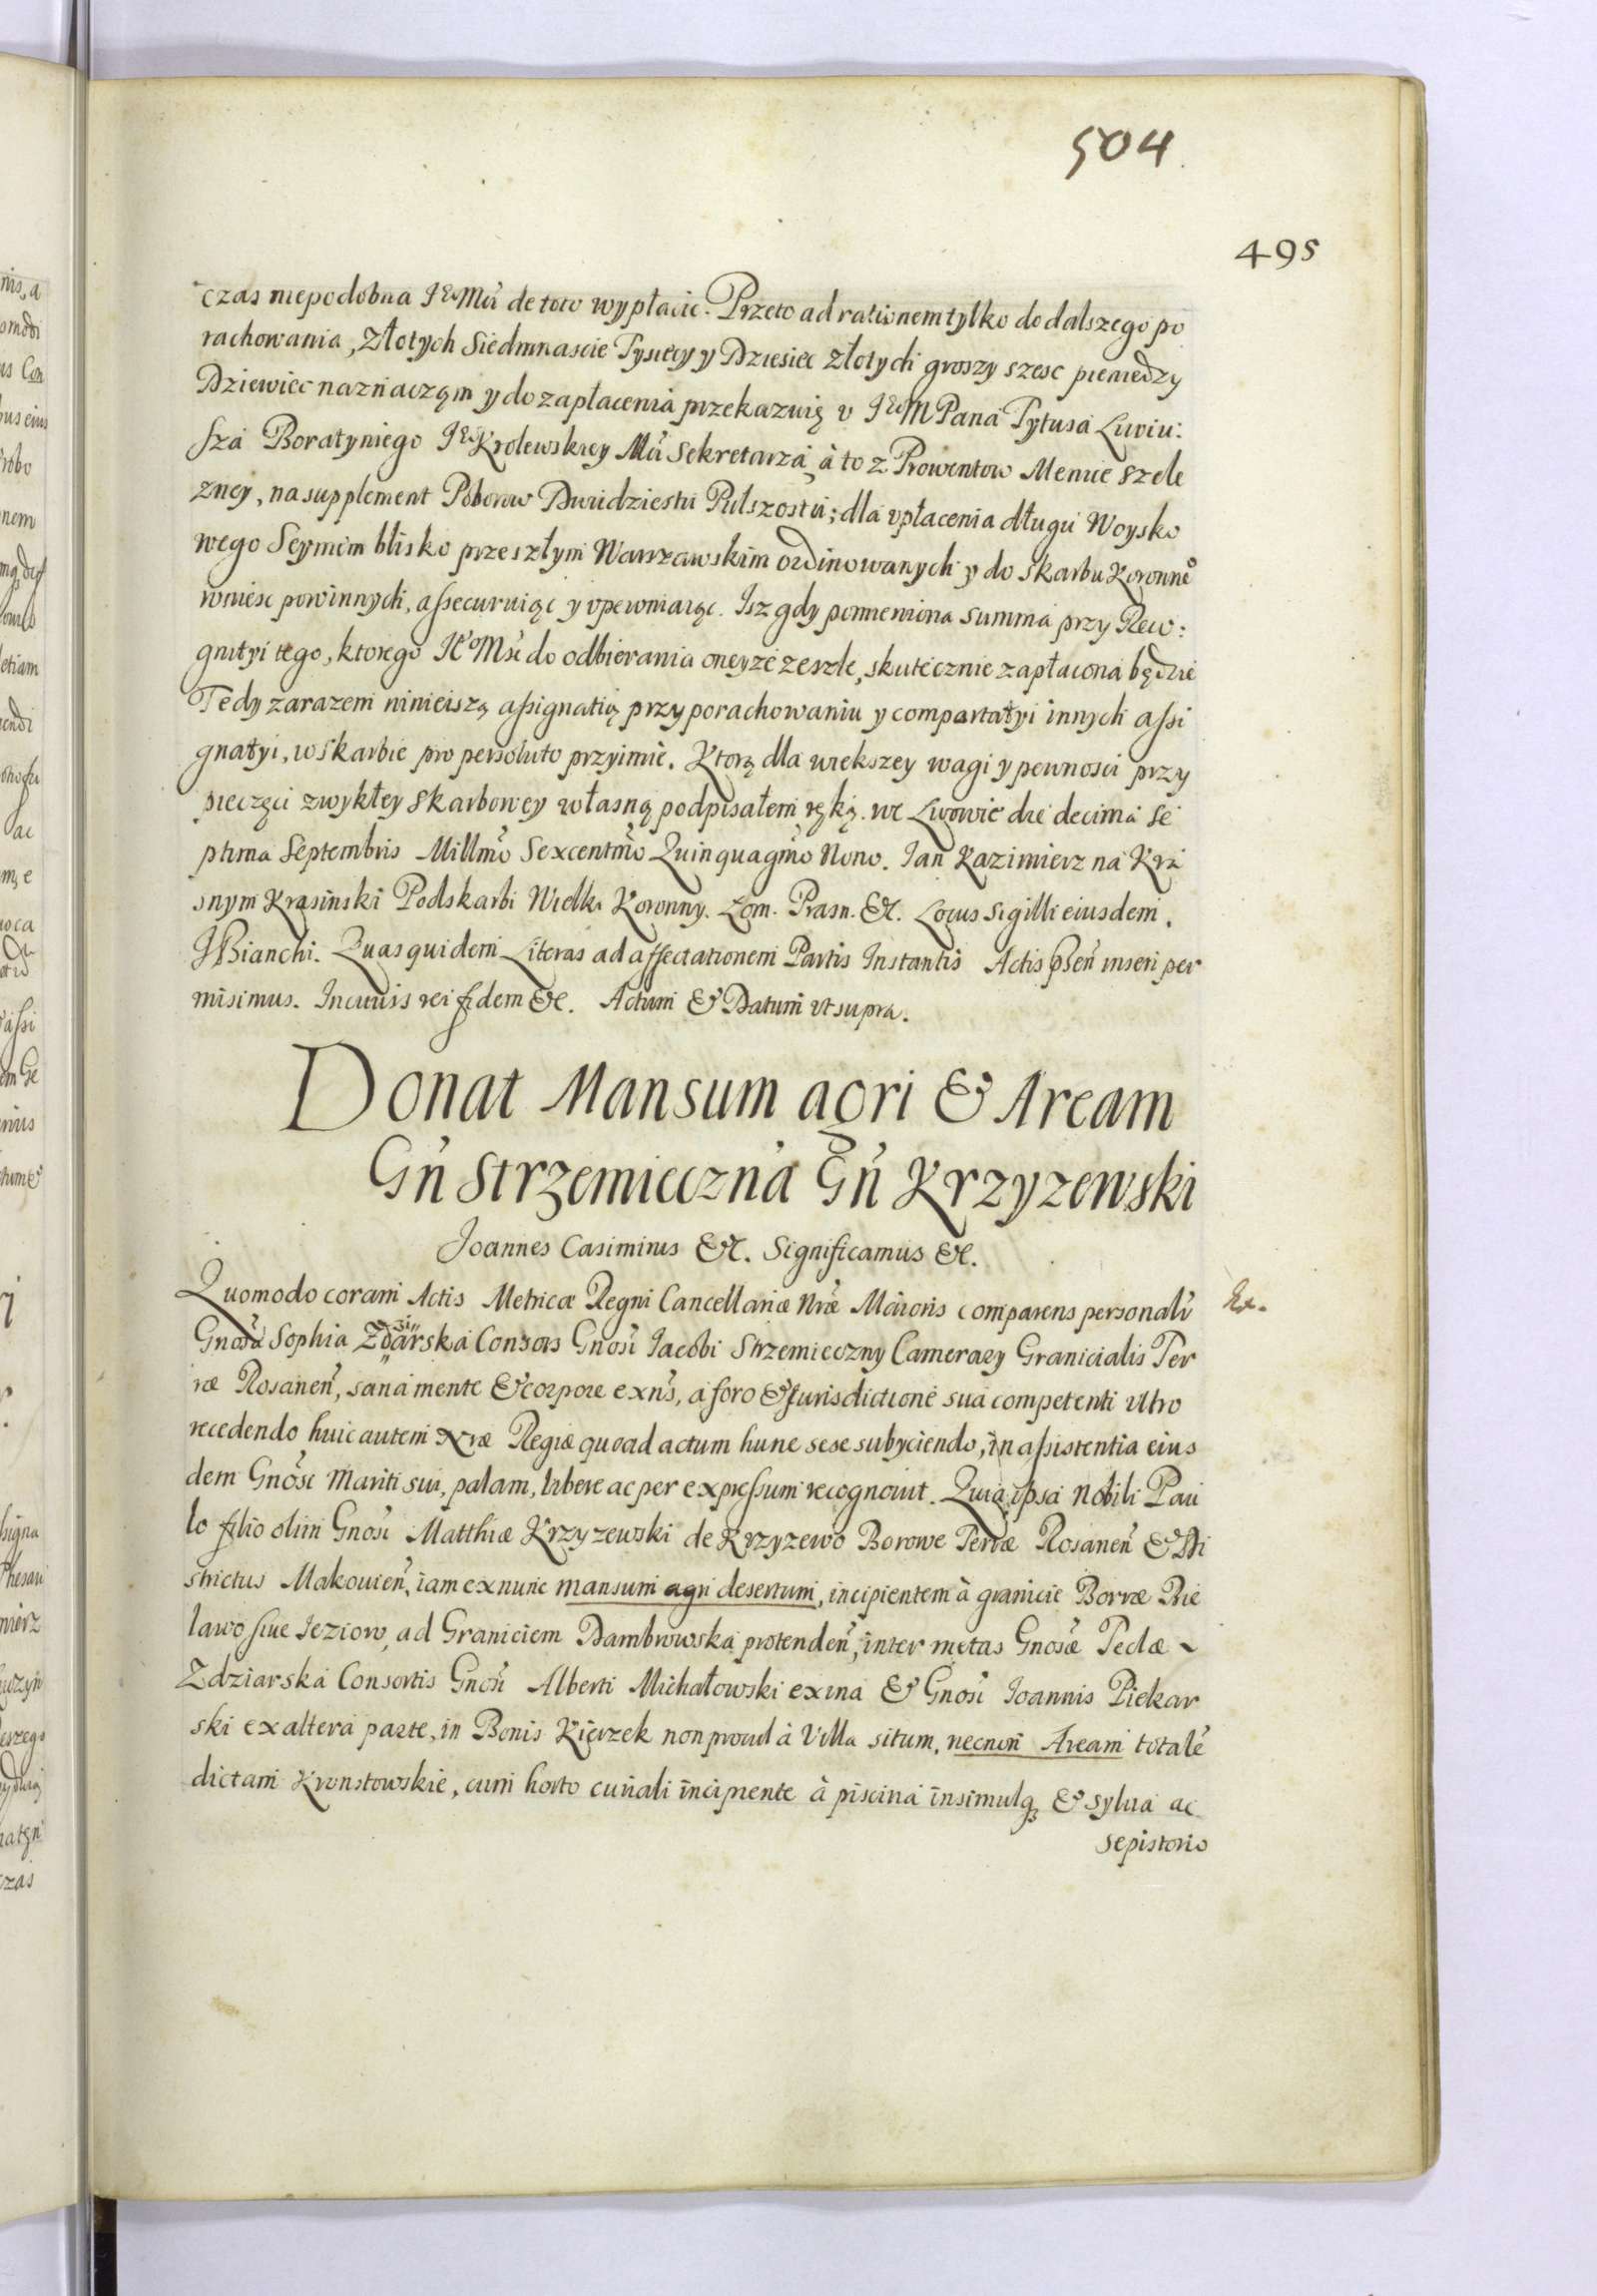 504
495
czas niepodobna Jᵉᵒ Mći de toto wypłacic. Przeto ad rationem tylko do dalszego po
rachowania, Złotych Siedmnascie Tysięcy y Dziesiec złotych groszy szesc pieniędzy
Dziewiec naznaczam y do zapłacenia przekazuię v Jᵉᵒ M Pana Tytusa Liwiu:
sza Boratyniego Jᵉᵒ Krolewskiey Mći Sekretarza, à to z Prowentow Menice szele
zney, na supplement Poborow Dwudziestu Pułszostu; dla vpłacenia długu Woysko
wego Seymem blisko przeszłym Warszawskim ordinowanych y do skarbu Koronne᷎ᵒ
wniesc powinnych, assecuruiąc y vpewniaiąc. Isz gdy pomieniona summa przy Rew:
gnityi tego, ktorego Jᵉᵒ Mśc do odbierania oneyze zeszle, skutecznie zapłacona będzie
Tedy zarazem ninieiszą assignatią przy porachowaniu y compartatyi innych assi
gnatyi, w skarbie pro persoluto przyimie. Ktorą dla wiekszey wagi y pewnosci przy
pieczęci zwykłey skarbowey własną podpisałem ręką. we Lwowie die decima se
ptima Septembris Millm̃o Sexcentm̃o Quinquagm̃o Nono. Jan Kazimierz na Kra
snym Krasinski Podskarbi Wielki Koronny. Łom. Prasn. &c. Locus Sigilli eiusdem.
J Bianchi. Quas quidem Literas ad affectationem Partis Instantis Actis p̃sen̄ inseri per
misimus. In cuius rei fidem &c. Actum & Datum vt supra.
Donat Mansum agri & Aream
Gn̄ Strzemieczna Gn̄ Krzyzewski
Joannes Casimirus &c. Significamus &c.
Quomodo coram Actis Metricæ Regni Cancellariæ Nr̃æ Maioris comparens personalr̃
Ex.
Gnosa Sophia Zdziarska Consors Gnosi Jacobi Strzemieczny Camerary Granicialis Ter
ræ Rosanen̄, sana mente & corpore exn̄s, a foro & Jurisdictione sua competenti vltro
recedendo huic autem Nr̃æ Regiæ quoad actum hunc sese subyciendo, in assistentia eius
dem Gnosi Mariti sui, palam, libere ac per expressum recognovit. Quia ipsa Nobili Pau
lo filio olim Gnosi Matthiæ Krzyzewski de Krzyzewo Borowe Terræ Rosanen̄ & Di
strictus Makovien̄, iam ex nunc mansum agri desertum, incipientem à granicie Borræ Bie
lawo siue Jeziorw, ad Graniciem Dambrowska protenden̄, inter metas Gnosæ Teclæ ~
Zdziarska Consortis Gnosi Alberti Michałowski ex una & Gnosi Joannis Piekar
ski ex altera parte, in Bonis Kierzek non procul à Villa situm, necnon Aream totalẽ
dictam Kronstowskie, cum horto cuñali incipiente à piscina insimulq₃ & sylua ac
sepistorio